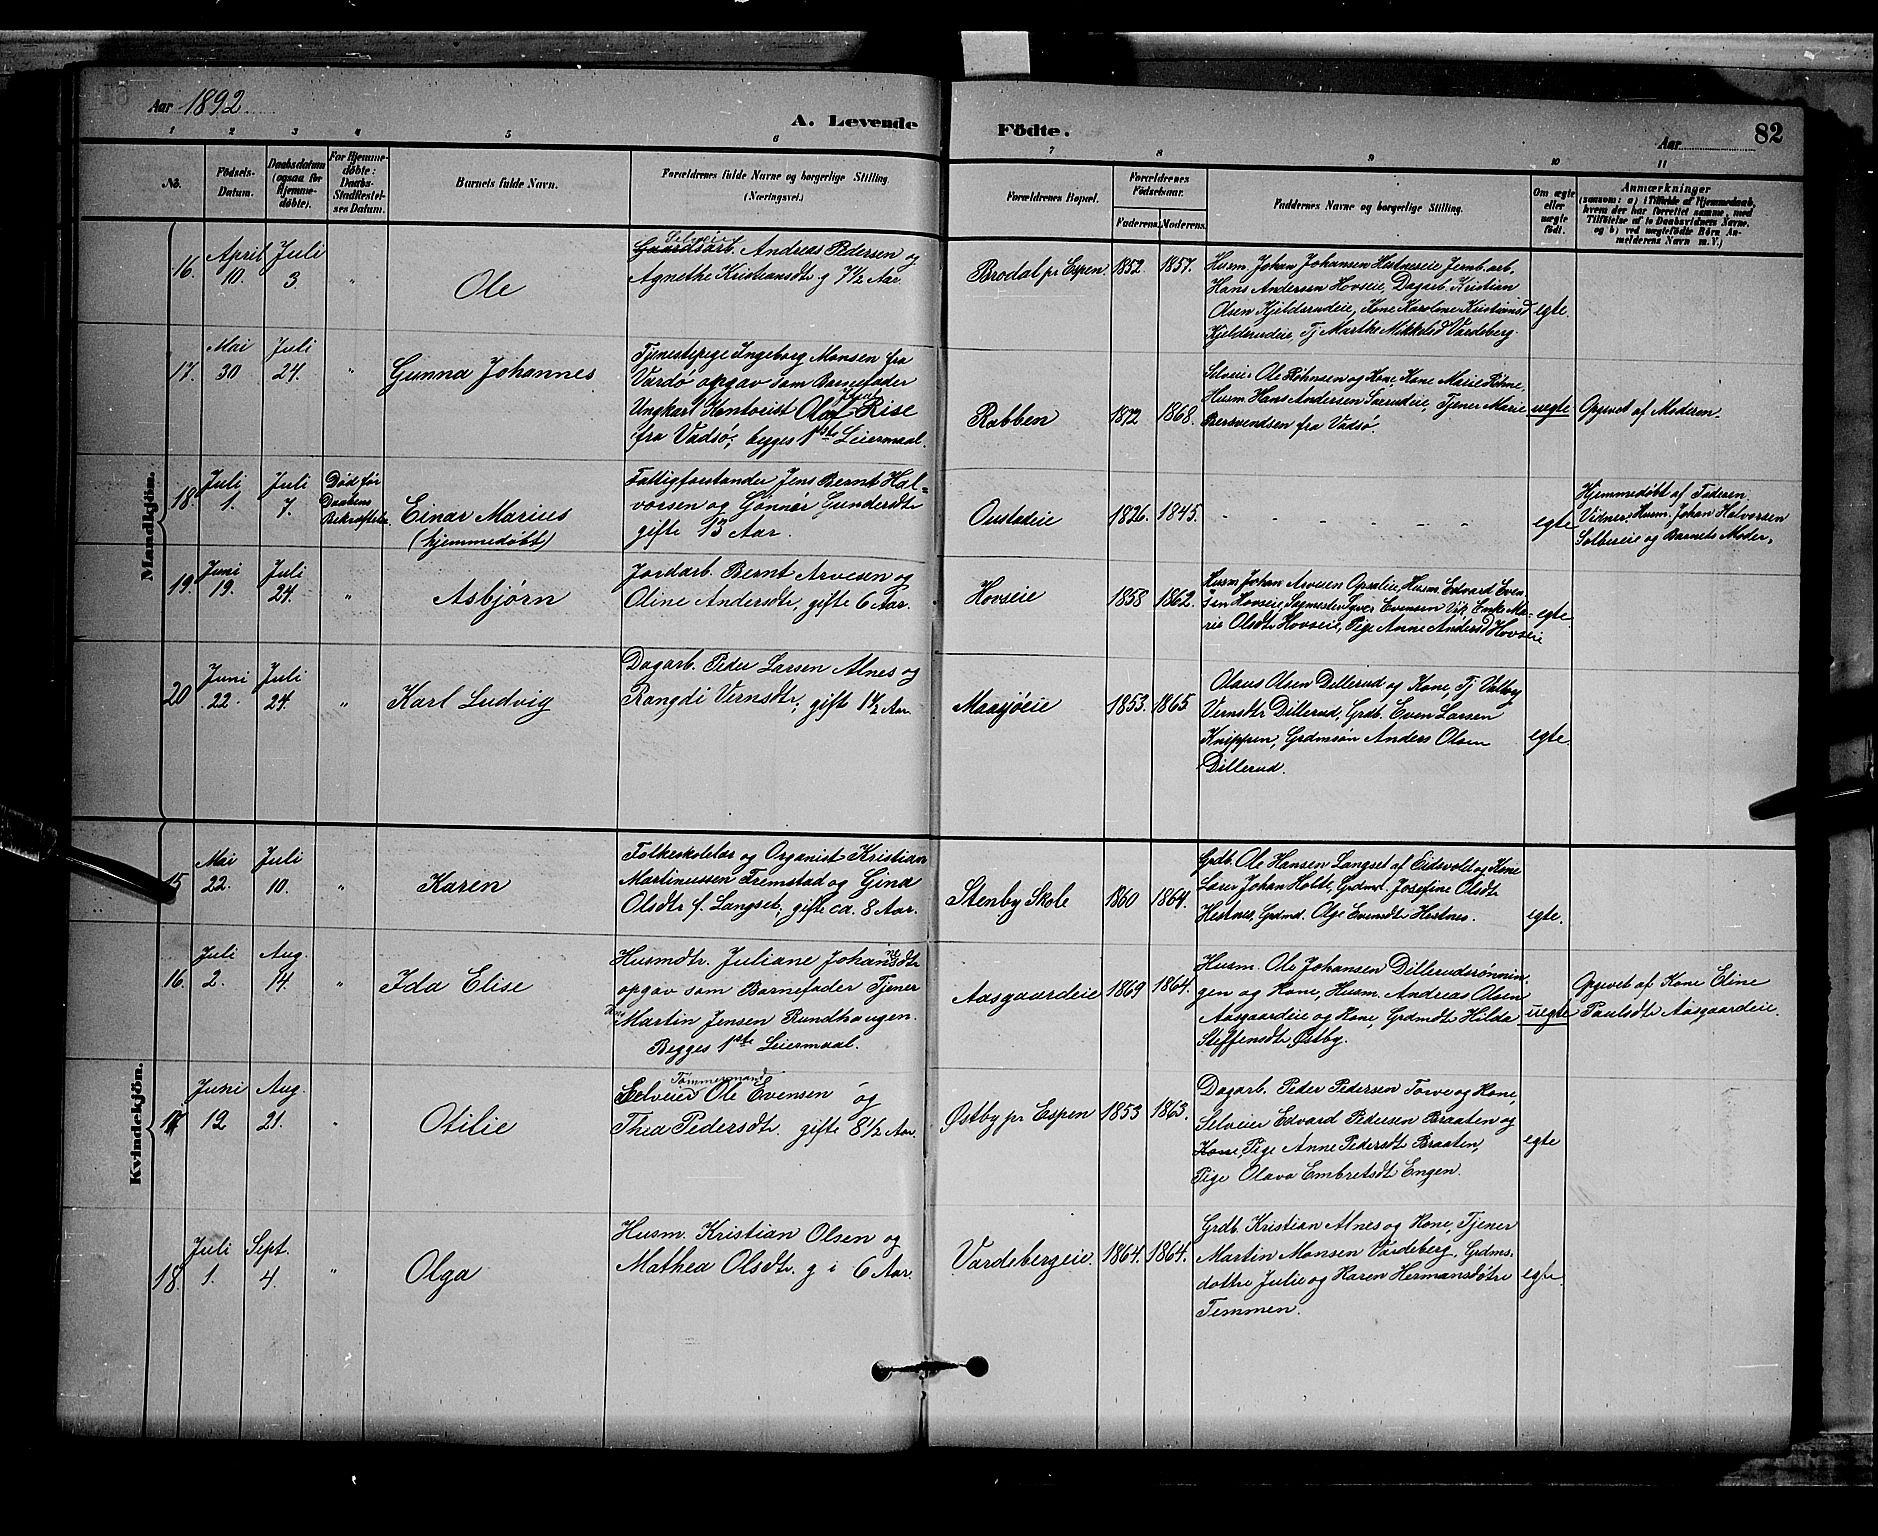 Aar 1892
A. Levende
Födte.
Aar
82
1 2 3 4 5 6 7 8 9 10 11
No.
Födsels-
Datum.
Daabsdatum
(ogsaa for
Hjemme-
döbte).
For Hjemme-
döbte:
Daabs-
Stadfæstel-
ses Datum.
Barnets fulde Navn.
Forældrenes fulde Navne og borgerlige Stilling
(Næringsvei.)
Forældrenes Bopæl.
Forældrenes
Födselsaar.
Faderens. Moderens.
Faddernes Navne og borgerlige Stilling.
Om ægte
eller
uægte
födt.
Anmærkninger
(saasom: a) i Tilfælde af Hjemmedaab,
hvem der har forrettet samme, med
Tilföielse af to Daabsvidners Navne,
og b) ved uægtefödte Börn An-
melderens Navn m. V.)
Mandkjön.
16.
April
10.
Juli
3
"
Ole
Selveier
Gaardsarb. Andreas Pedersen og
Agnethe Kristiansdt g 7½ Aar.
Brodal pr Espen
1852. 1857.
Husm. Johan Johansen Hestneseie Jernb.arb.
Hans Andersen Hovseie, Dagarb. Kristian
Olsen Kjeldsrudeie, Kone Karoline Kristiansd
Kjeldsrudeie, Tj Marthe Mikkelsd Vardeberg.
egte.
17.
Mai
30
Juli
24.
"
Gunna Johannes
Tjenestepige Ingeborg Monsen fra
Vardø opgav som Barnefader
Ungkarl Kontorist Olaf Rise
fra Vadsø; begges 1ste Leiermaal.
Robben
1872 1868.
Selveier Ole Røhnsen og Kone, Kone Marie Røhne,
Husm. Hans Andersen Sorrudeie, Tjener Marie
Bersvendsen fra Vadsø.
uegte
Opgivet af Moderen.
18.
Juli
1.
Juli
7.
Død før
Daabens
Bekræftelse
Einar Marius
(hjemmedøbt)
Fattigforstander Jens Bernt Hal-
vorsen og Gønnor Gundersdtr
gifte 13 Aar.
Oustadeie
1826. 1845.
- - - - - -
egte
Hjemmedøbt af Faderen.
Vidner: Husm. Johan Halvorsen
Solbereie og Barnets Moder.
19.
Juni
19.
Juli
24.
"
Asbjørn
Jordarb. Bernt Arvesen og
Oline Andersdtr, gifte 6 Aar.
Hovseie
1858 1862.
Husm Johan Arvesen Opsaleie, Husm. Edvard Even
sen Hovseie, Sagmester Syver Evensen Vik, Enke Ma-
rie Olsdtr Hovseie, Pige Anne Andersd Hovseie
egte.
20
Juni
22.
Juli
24.
"
Karl Ludvig
Dagarb. Peder Larsen Alnes og
Rangdi Vernsdtr, gifte 1½ Aar.
Maasjøeie
1853. 1865.
Olaus Olsen Dillerud og Kone, Tj Valbg
Vernsdtr Dillerud, Grdb. Even Larsen
Knippen, Grdmsøn Anders Olsen
Dillerud.
egte.
Kvindekjön.
15
Mai
22.
Juli
10.
"
Karen
Folkeskolelær og Organist Kristian
Martinussen Fremstad og Gina
Olsdtr f. Langset, gifte ca. 8 Aar.
Stenby Skole
1860 1864.
Grdb. Ole Hansen Langset af Eidsvold og Kone
Lærer Johan Holte, Grdmd. Josefine Olsdtr
Hestnes, Grdmd. Olge Evensdtr Hestnes.
egte.
16.
Juli
2.
Aug.
14.
"
Ida Elise
Husmdtr. Juliane Johannesdtr
opgav som Barnefader Tjener
Martin Jensen Rundhaugen.
Begges 1ste Leiermaal.
Aasgaardeie
1869 1864.
Husm. Ole Johansen Dillerudsrønnin-
gen og Kone, Husm. Andreas Olsen
Aasgaardeie og Kone, Grdmdtr Hilda
Steffensdtr Østby.
uegte
Opgivet af Kone Eline
Paulsdtr Aasgaardeie.
17
Juni
12
Aug.
21.
"
Otilie
Tømmermand
Selveier Ole Evensen og
Thea Pedersdtr. gifte 8½ Aar.
Østby pr Espen
1853 1863.
Dagarb. Peder Pedersen Torve og Kone,
Selveier Edvard Pedersen Braaten og
Kone, Pige Anne Pedersdtr Braaten,
Pige Olava Embretsdt Engen.
egte
18.
Juli
1.
Sept.
4.
"
Olga
Husm. Kristian Olsen og
Mathea Olsdtr. g i 6 Aar.
Vardebergeie.
1864. 1864.
Grdb. Kristian Alnes og Kone, Tjener
Martin Monsen Vardeberg, Grdms.
dottre Julie og Karen Hermansdøtre
Temmen.
egte.